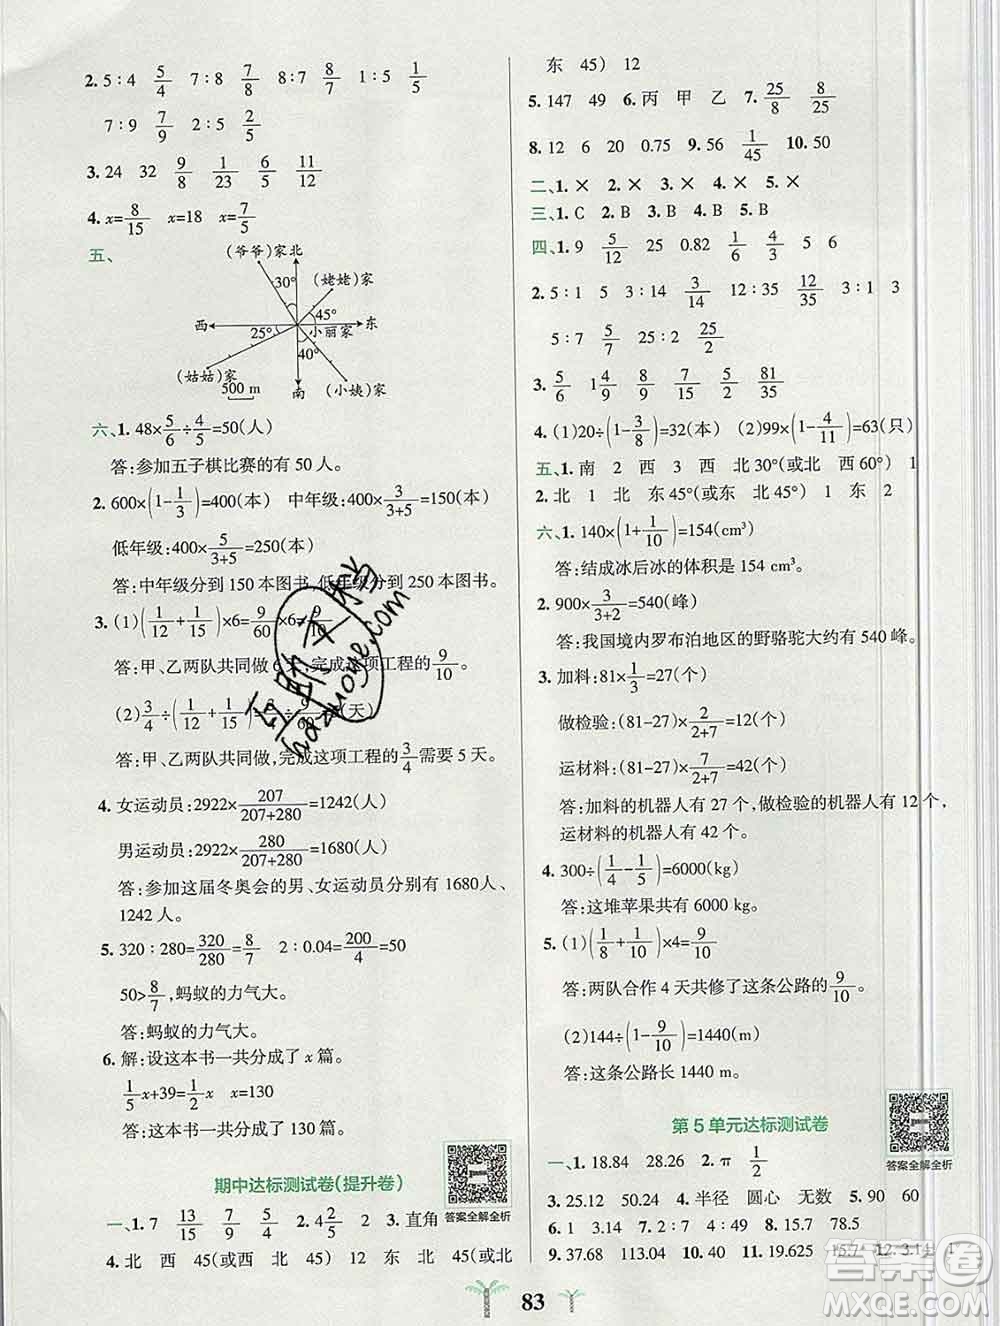 2. 5∶4 5/4 7∶8 7/8 8∶7 8/7 1∶5 1/5
7∶9 7/9 2∶5 2/5
3. 24 32 9/8 1/23 6/5 11/12
4. x=8/15 x=18 x=7/5
五、
(爷爷)家 北
30°
(姥姥)家
45°
西 25° 小丽家 东
40°
(姑姑)家
500 m 南 (小姨)家
六、1. 48×5/6÷4/5=50(人)
答:参加五子棋比赛的有 50 人。
2. 600×(1-1/3)=400(本) 中年级:400×3/(3+5)=150(本)
低年级:400×5/(3+5)=250(本)
答:中年级分到 150 本图书,低年级分到 250 本图书。
3. (1)(1/12+1/15)×6=9/60×6=9/10
答:甲、乙两队共同做 6 天,完成这项工程的9/10。
(2)3/4÷(1/12+1/15)=3/4÷9/60=5(天)
答:甲、乙两队共同做,完成这项工程的3/4需要 5 天。
4. 女运动员:2922×207/(207+280)=1242(人)
男运动员:2922×280/(207+280)=1680(人)
答:参加这届冬奥会的男、女运动员分别有 1680人、
1242 人。
5. 320∶280=320/280=8/7 2∶0.04=200/4=50
50>8/7,蚂蚁的力气大。
答:蚂蚁的力气大。
6. 解:设这本书一共分成了 x 篇。
1/5x+39=1/2x x=130
答:这本书一共分成了 130 篇。
期中达标测试卷(提升卷)
答案全解全析
一、1. 7 13/15 7/9 5/4 2. 4 2/5 2 3. 直角
4. 北 西 45(或西 北 45) 12 东 北 45(或北
东 45) 12
5. 147 49 6. 丙 甲 乙 7. 25/8 8/25
8. 12 6 20 0.75 9. 56 1/45 10. 50
二、1. × 2. × 3. × 4. × 5. ×
三、1. C 2. B 3. B 4. B 5. B
四、1. 9 5/12 25 0.82 1/6 4/3 5 6
2. 5∶1 5 3∶14 3/14 12∶35 12/35 3∶1 3
5∶7 5/7 25∶2 25/2
3. 5/6 1 4/9 9/5 9/4 2/7 81/35
4. (1)20÷(1-3/8)=32(本) (2)99×(1-4/11)=63(只)
五、1. 南 2 西 3 西 北30°(或北 西60°) 1
2. 北 1 北 东45°(或东 北45°) 1 东 2
六、1. 140×(1+1/10)=154(cm³)
答:结成冰后冰的体积是 154 cm³。
2. 900×3/(3+2)=540(峰)
答:我国境内罗布泊地区的野骆驼大约有 540 峰。
3. 加料:81×1/3=27(个)
做检验:(81-27)×2/(2+7)=12(个)
运材料:(81-27)×7/(2+7)=42(个)
答:加料的机器人有 27 个,做检验的机器人有 12 个,
运材料的机器人有 42 个。
4. 300÷(1/4-1/5)=6000(kg)
答:这堆苹果共有 6000 kg。
5. (1)(1/8+1/10)×4=9/10
答:两队合作 4 天共修了这条公路的9/10。
(2)144÷(1-9/10)=1440(m)
答:这条公路长 1440 m。
第 5 单元达标测试卷
答案全解全析
一、1. 18.84 28.26 2. π 1/2
3. 25.12 50.24 4. 半径 圆心 无数 5. 90 60
6. 1 3.14 7. 2∶3 2∶3 4∶9 8. 15.7 78.5
9. 37.68 113.04 10. 40 11. 19.625 15.7 12. 3.14 1
83
作业帮
hdzuoye.com
答案圈
MXQE.COM